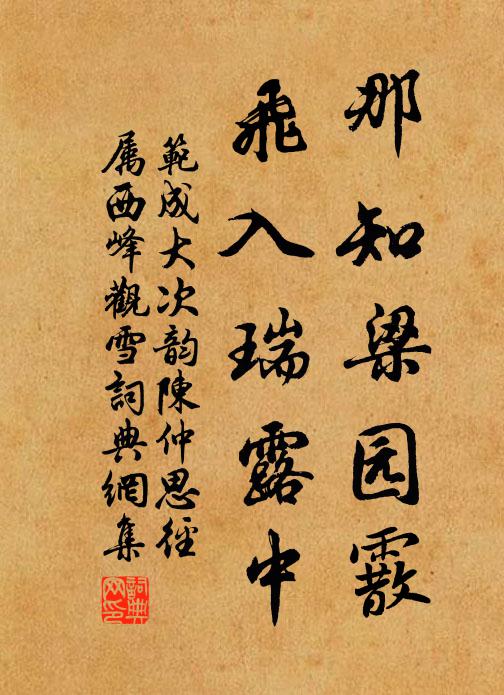 那知梁园霰
飛入瑞露中
範成大次韵陳仲思徑
属西峰觀雪詞典網集
詞典
网印